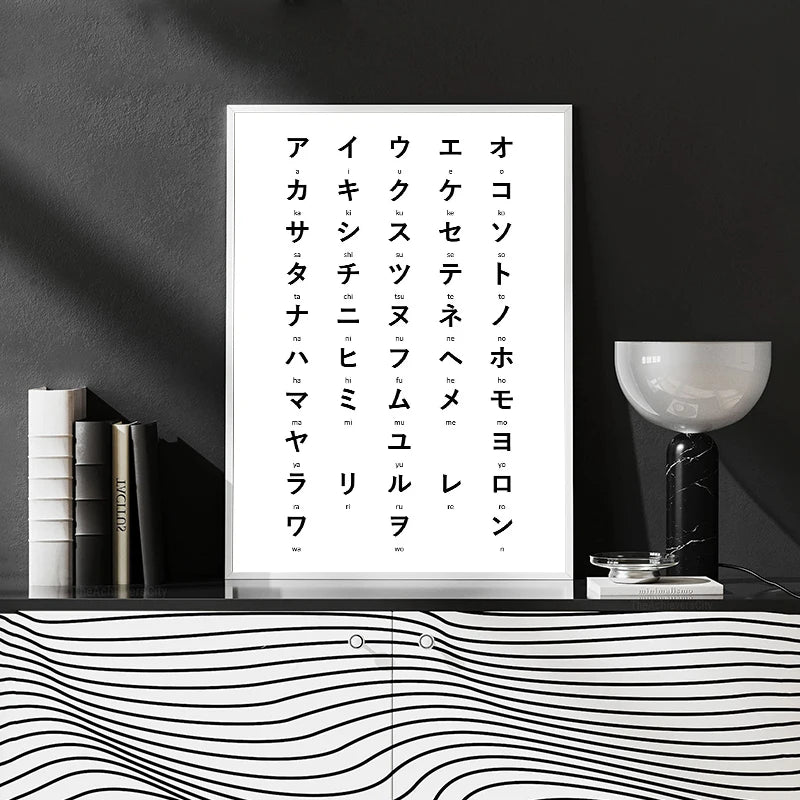 ア イ ウ エ オ
a i u e o
カ キ ク ケ コ
ka ki ku ke ko
サ シ ス セ ソ
sa shi su se so
タ チ ツ テ ト
ta chi tsu te to
ナ ニ ヌ ネ ノ
na ni nu ne no
ハ ヒ フ ヘ ホ
ha hi fu he ho
マ ミ ム メ モ
ma mi mu me mo
ヤ ユ ヨ
ya yu yo
ラ リ ル レ ロ
ra ri ru re ro
ワ ヲ ン
wa wo n
minimalismo
TheAchieversCity
TheAchieversCity